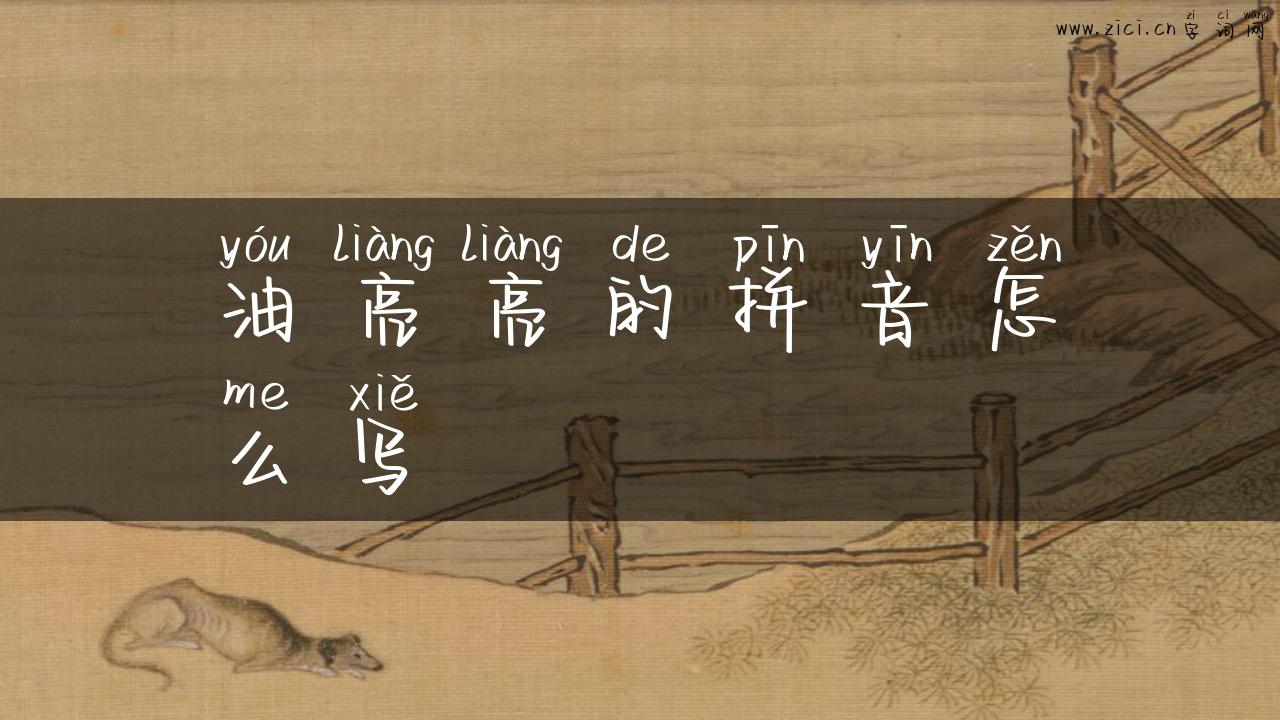 zì cí wǎng
www.zici.cn 字 词 网
yóu liàng liàng de pīn yīn zěn
油 亮 亮 的 拼 音 怎
me xiě
么 写